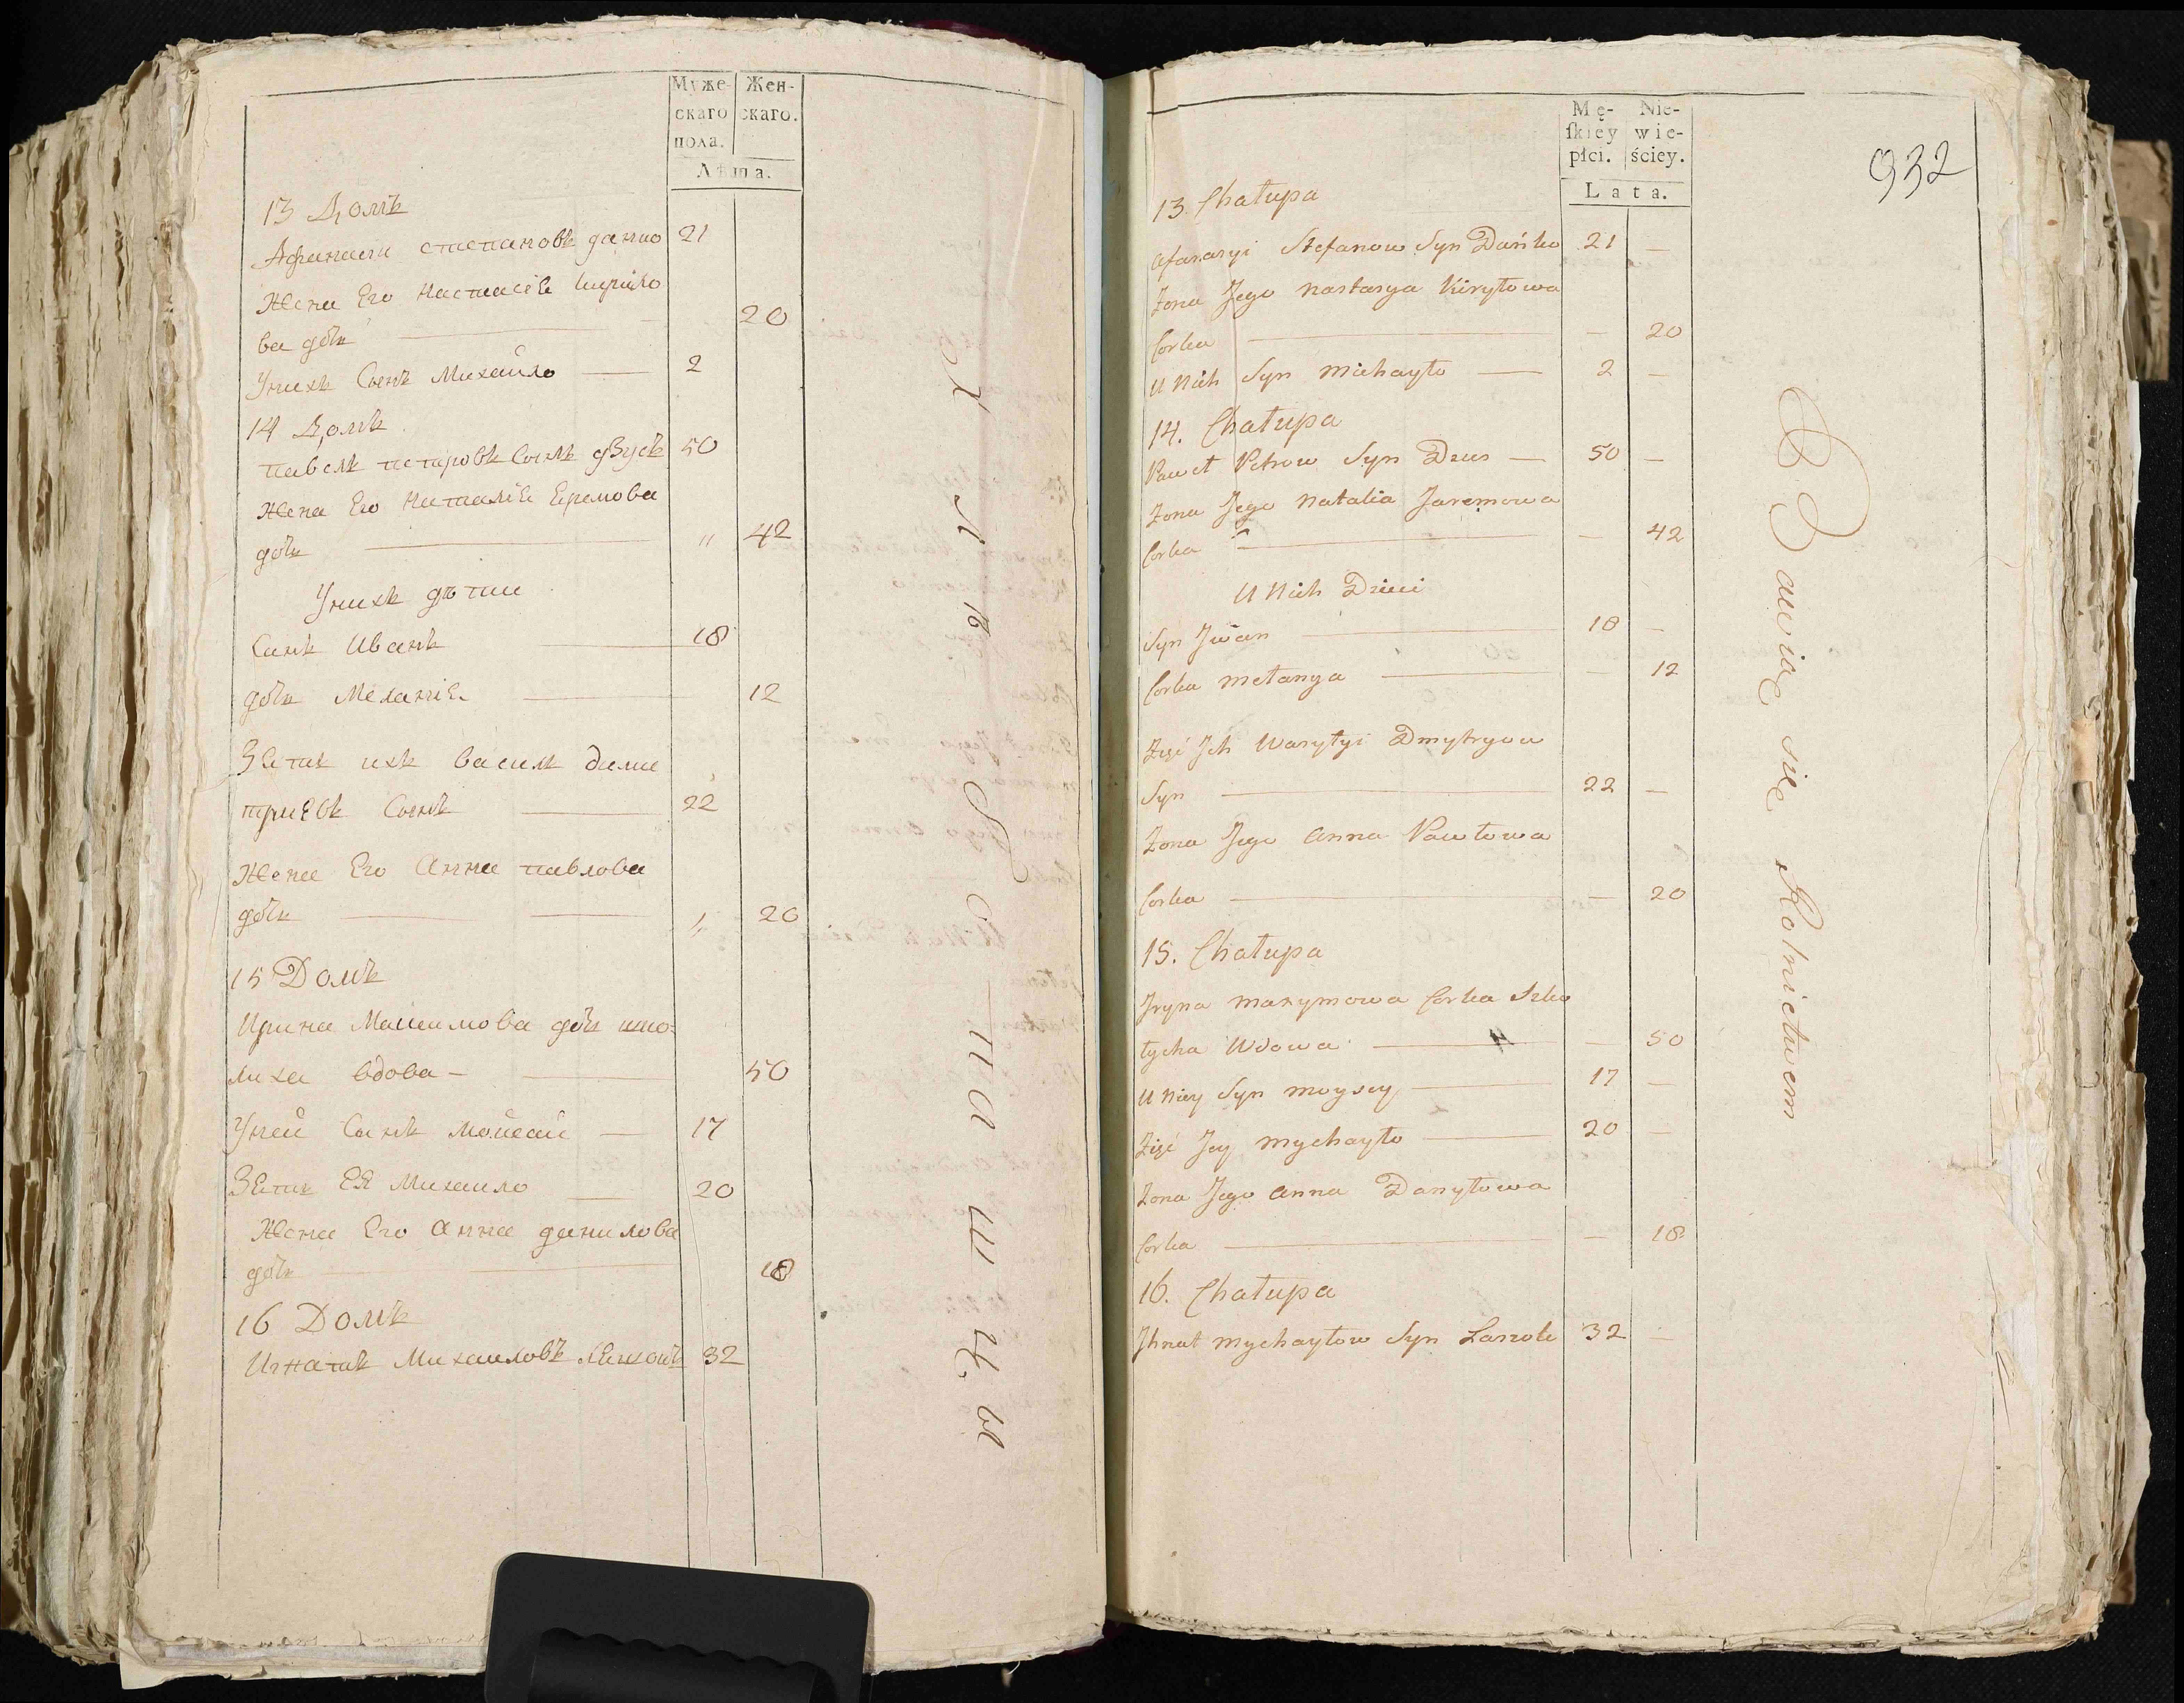 Муже-
скаго
пола.
Жен-
скаго.
Лѣта.
13 Домъ
Афанаси степановъ данко 21
Жена Его настасіѣ кирило
ва дочь 20
Унихъ Сынъ Михайло 2
14 Домъ
павелъ петровъ Сынъ дзусъ 50
Жена Его Наталіѣ Еремова
дочь " 42
Унихъ дѣти
Сынъ Иванъ 18
дочь Меланіѣ 12
Зѣть ихъ василь дими
триевъ Сынъ 22
Жена Его Анна павлова
дочь " 20
15 Домъ
Ирина Максимова дочь шко-
лиха вдова 50
Уней Сынъ Мойсей 17
Зѣть ЕЯ Михаило 20
Жена Его Анна данилова
дочь 18
16 Домъ
Игнатъ Михаиловъ 32
Хлѣбопашцы
Mę-
ſkiey
płci.
Nie-
wie-
ściey.
Lata.
932
13. Chałupa
Afanasyi Stefanow Syn Dańko 21 —
Żona Jego Nastasya Kiryłowa
Corka — 20
U Nich Syn Michayło 2 —
14. Chałupa
Paweł Petrow Syn Dzus 50 —
Żona Jego Natalia Jaremowa
Corka — 42
U Nich Dzieci
Syn Jwan 18 —
Corka Mełanya — 12
Zięć Jch Wasylyi Dmytryow
Syn 22 —
Żona Jego Anna Pawłowa
Corka — 20
15. Chałupa
Jryna Maxymowa Corka Szko
łycha Wdowa — 50
U Niey Syn Moysey 17 —
Zięć Jey Mychayło 20 —
Żona Jego Anna Danyłowa
Corka — 18
16. Chałupa
Jhnat Mychayłow Syn 32 —
Bawią się Rolnictwem